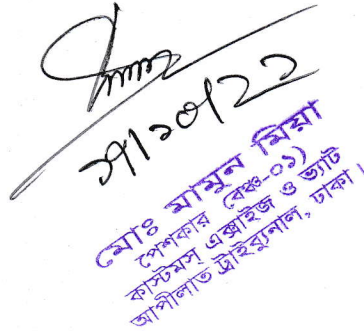 মোঃ মামুন মিয়া
পেশকার (বেঞ্চ-০১)
কাস্টমস্ এক্সাইজ ও ভ্যাট
আপীলাত ট্রাইব্যুনাল, ঢাকা ।